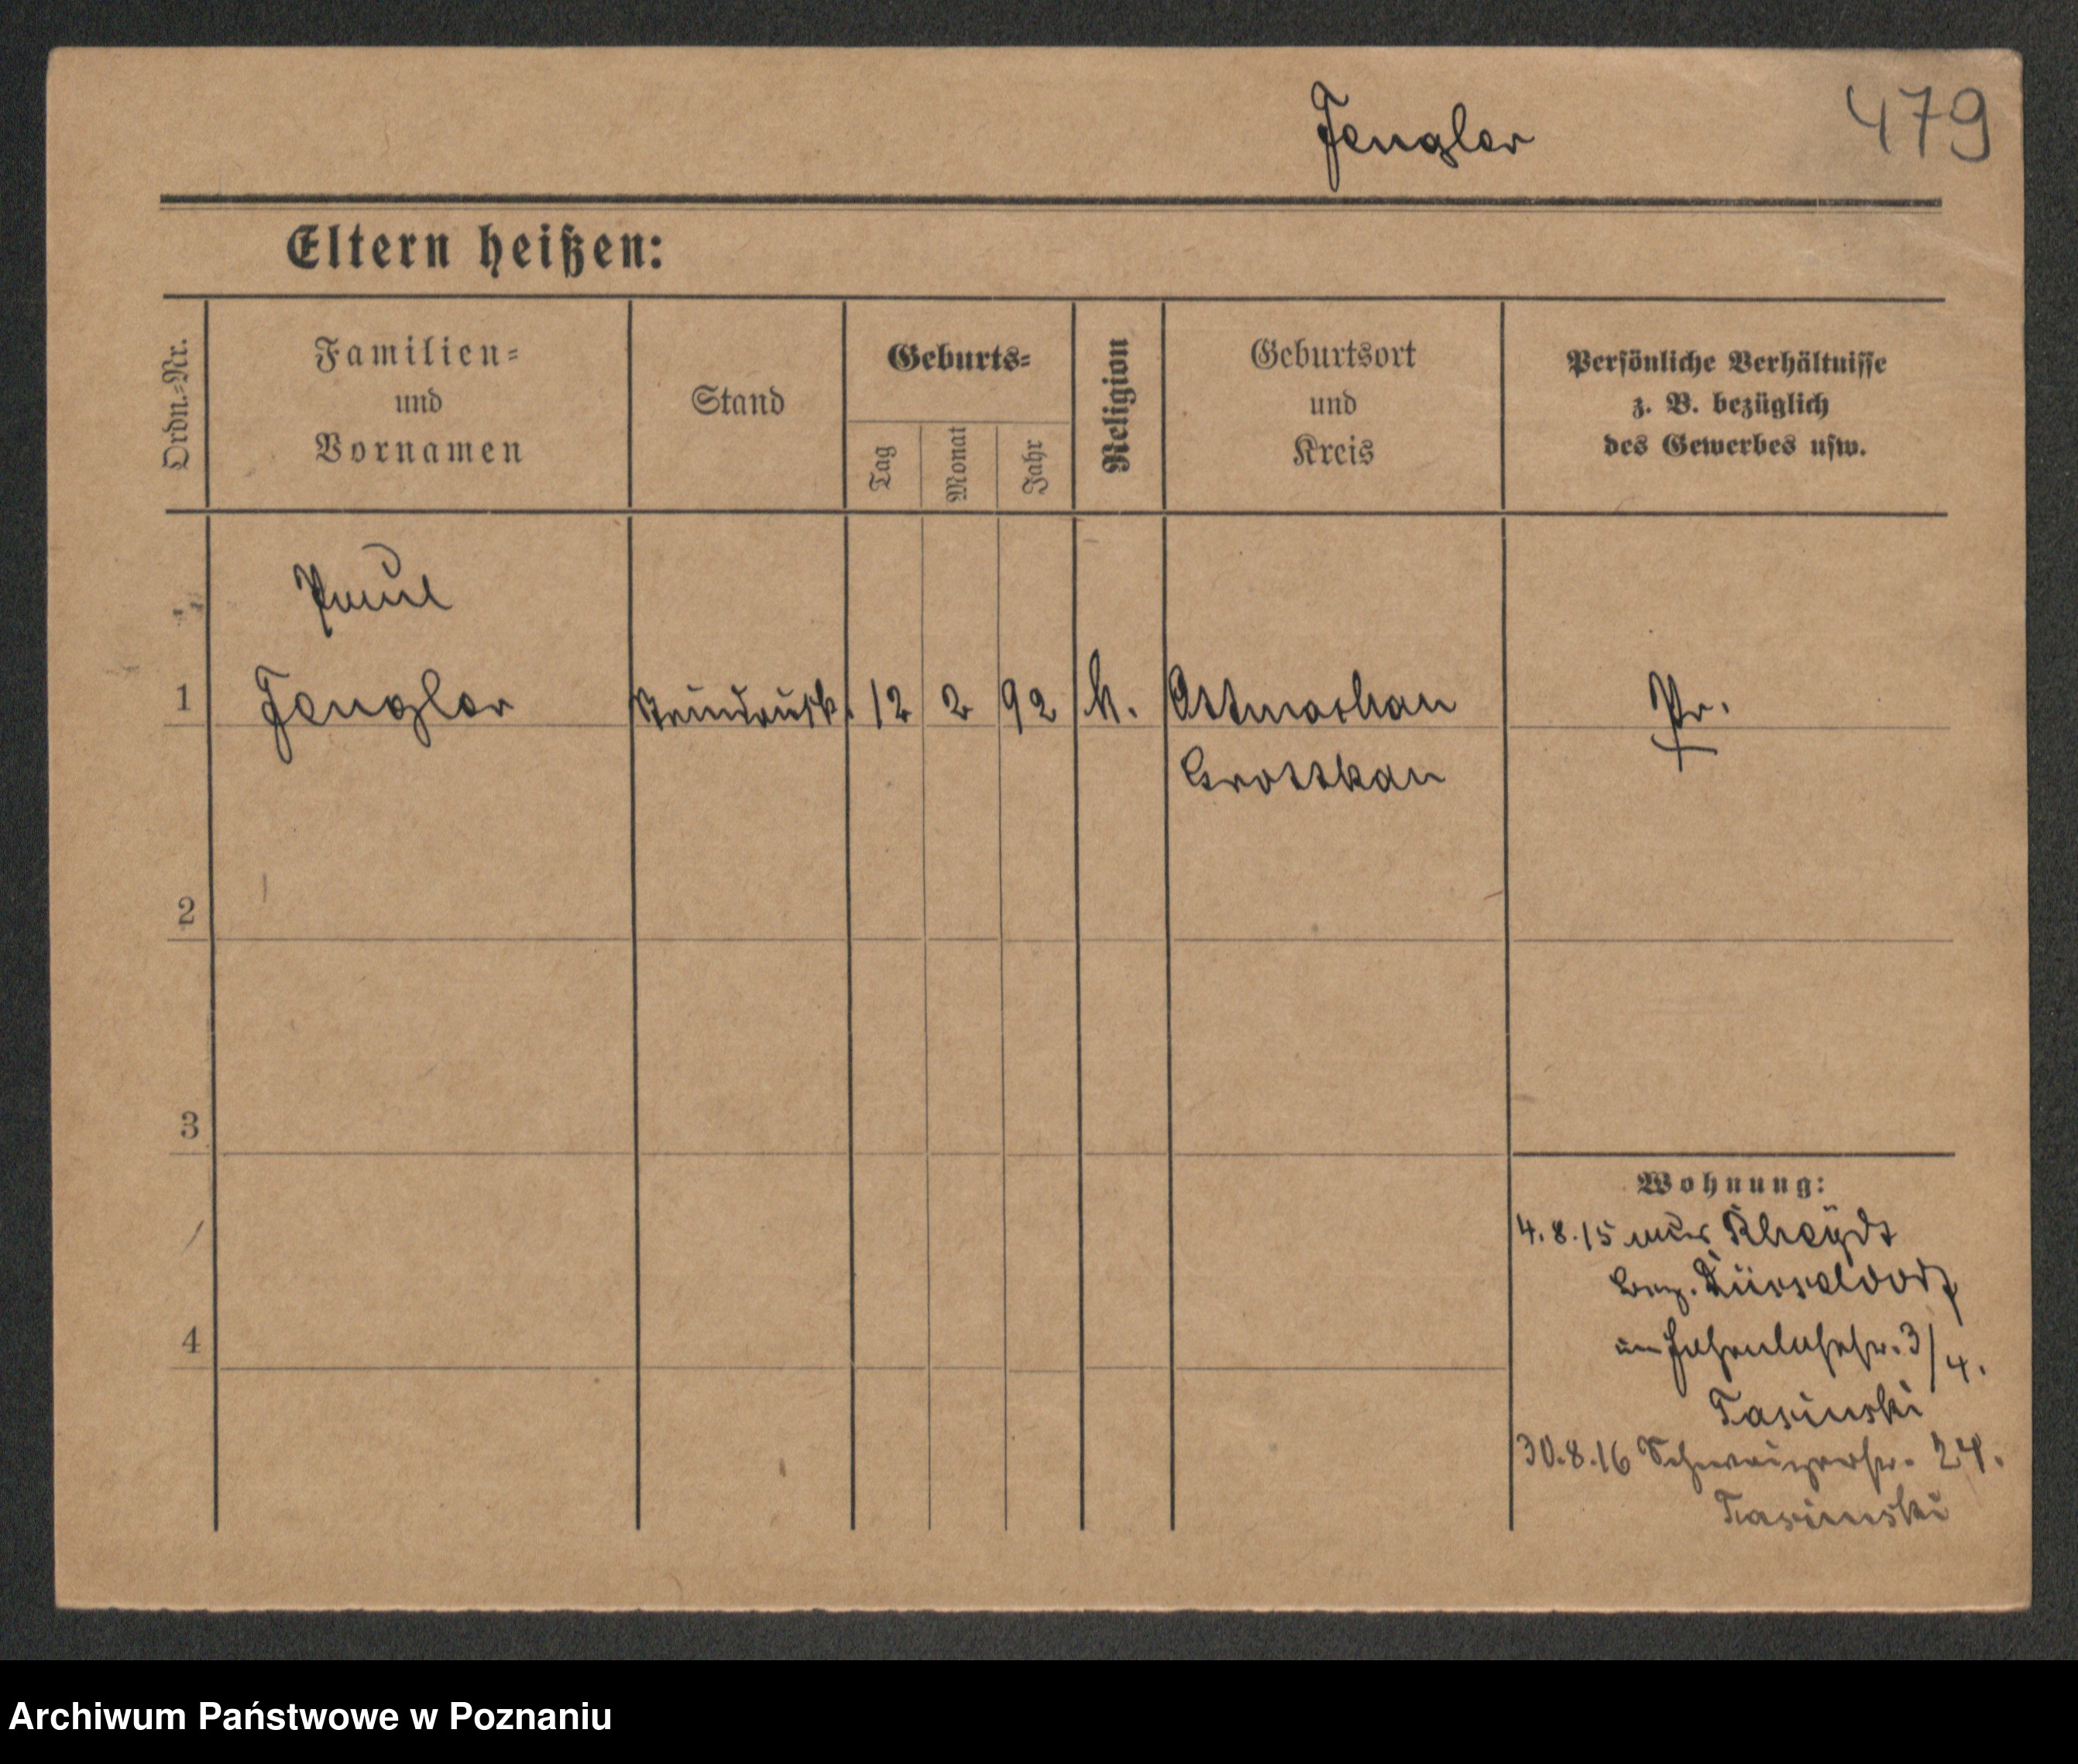 Fengler
479
Eltern heißen:
Ordn.-Nr.
Familien-
und
Vornamen
Stand
Geburts-
Tag
Monat
Jahr
Religion
Geburtsort
und
Kreis
Persönliche Verhältnisse
z. B. bezüglich
des Gewerbes usw.
Paul
1 Fengler Steindruck. 12 2 92 k. Ottmachau Pr.
Grottkau
2
3
4
Wohnung:
4.8.15 aus Rheydt
Bez. Düsseldorf
3/4.
Tasinski
30.8.16 24.
Tasinski
Archiwum Państwowe w Poznaniu